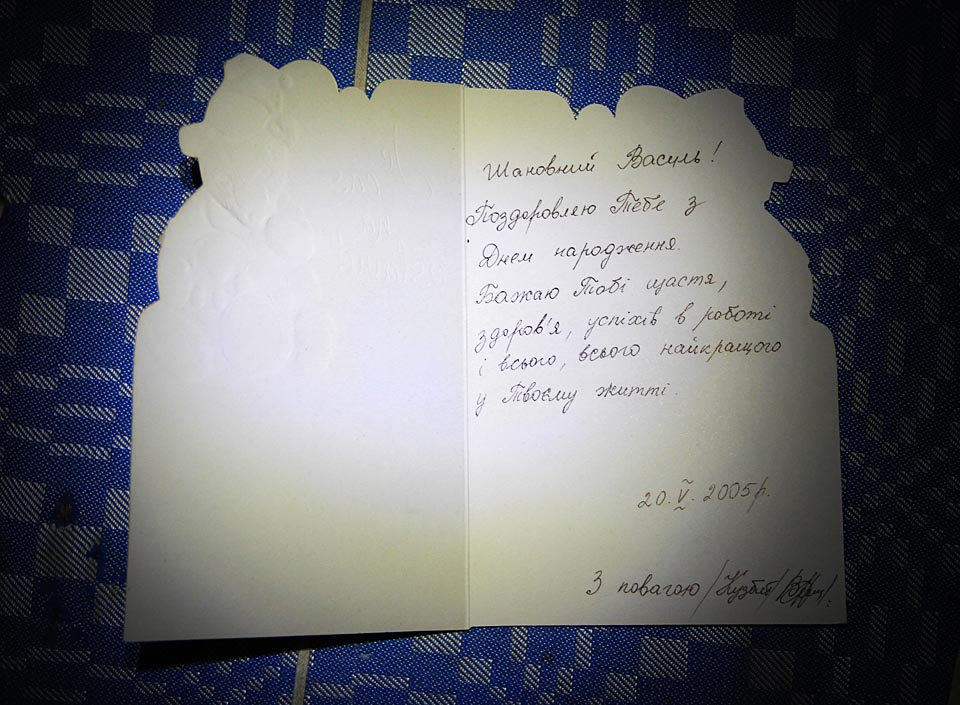 Шановний Василь!
Поздоровляю Тебе з
Днем народження.
Бажаю Тобі щастя,
здоров'я, успіхів в роботі
і всього, всього найкращого
у Твоєму житті.
20. V. 2005р.
З повагою